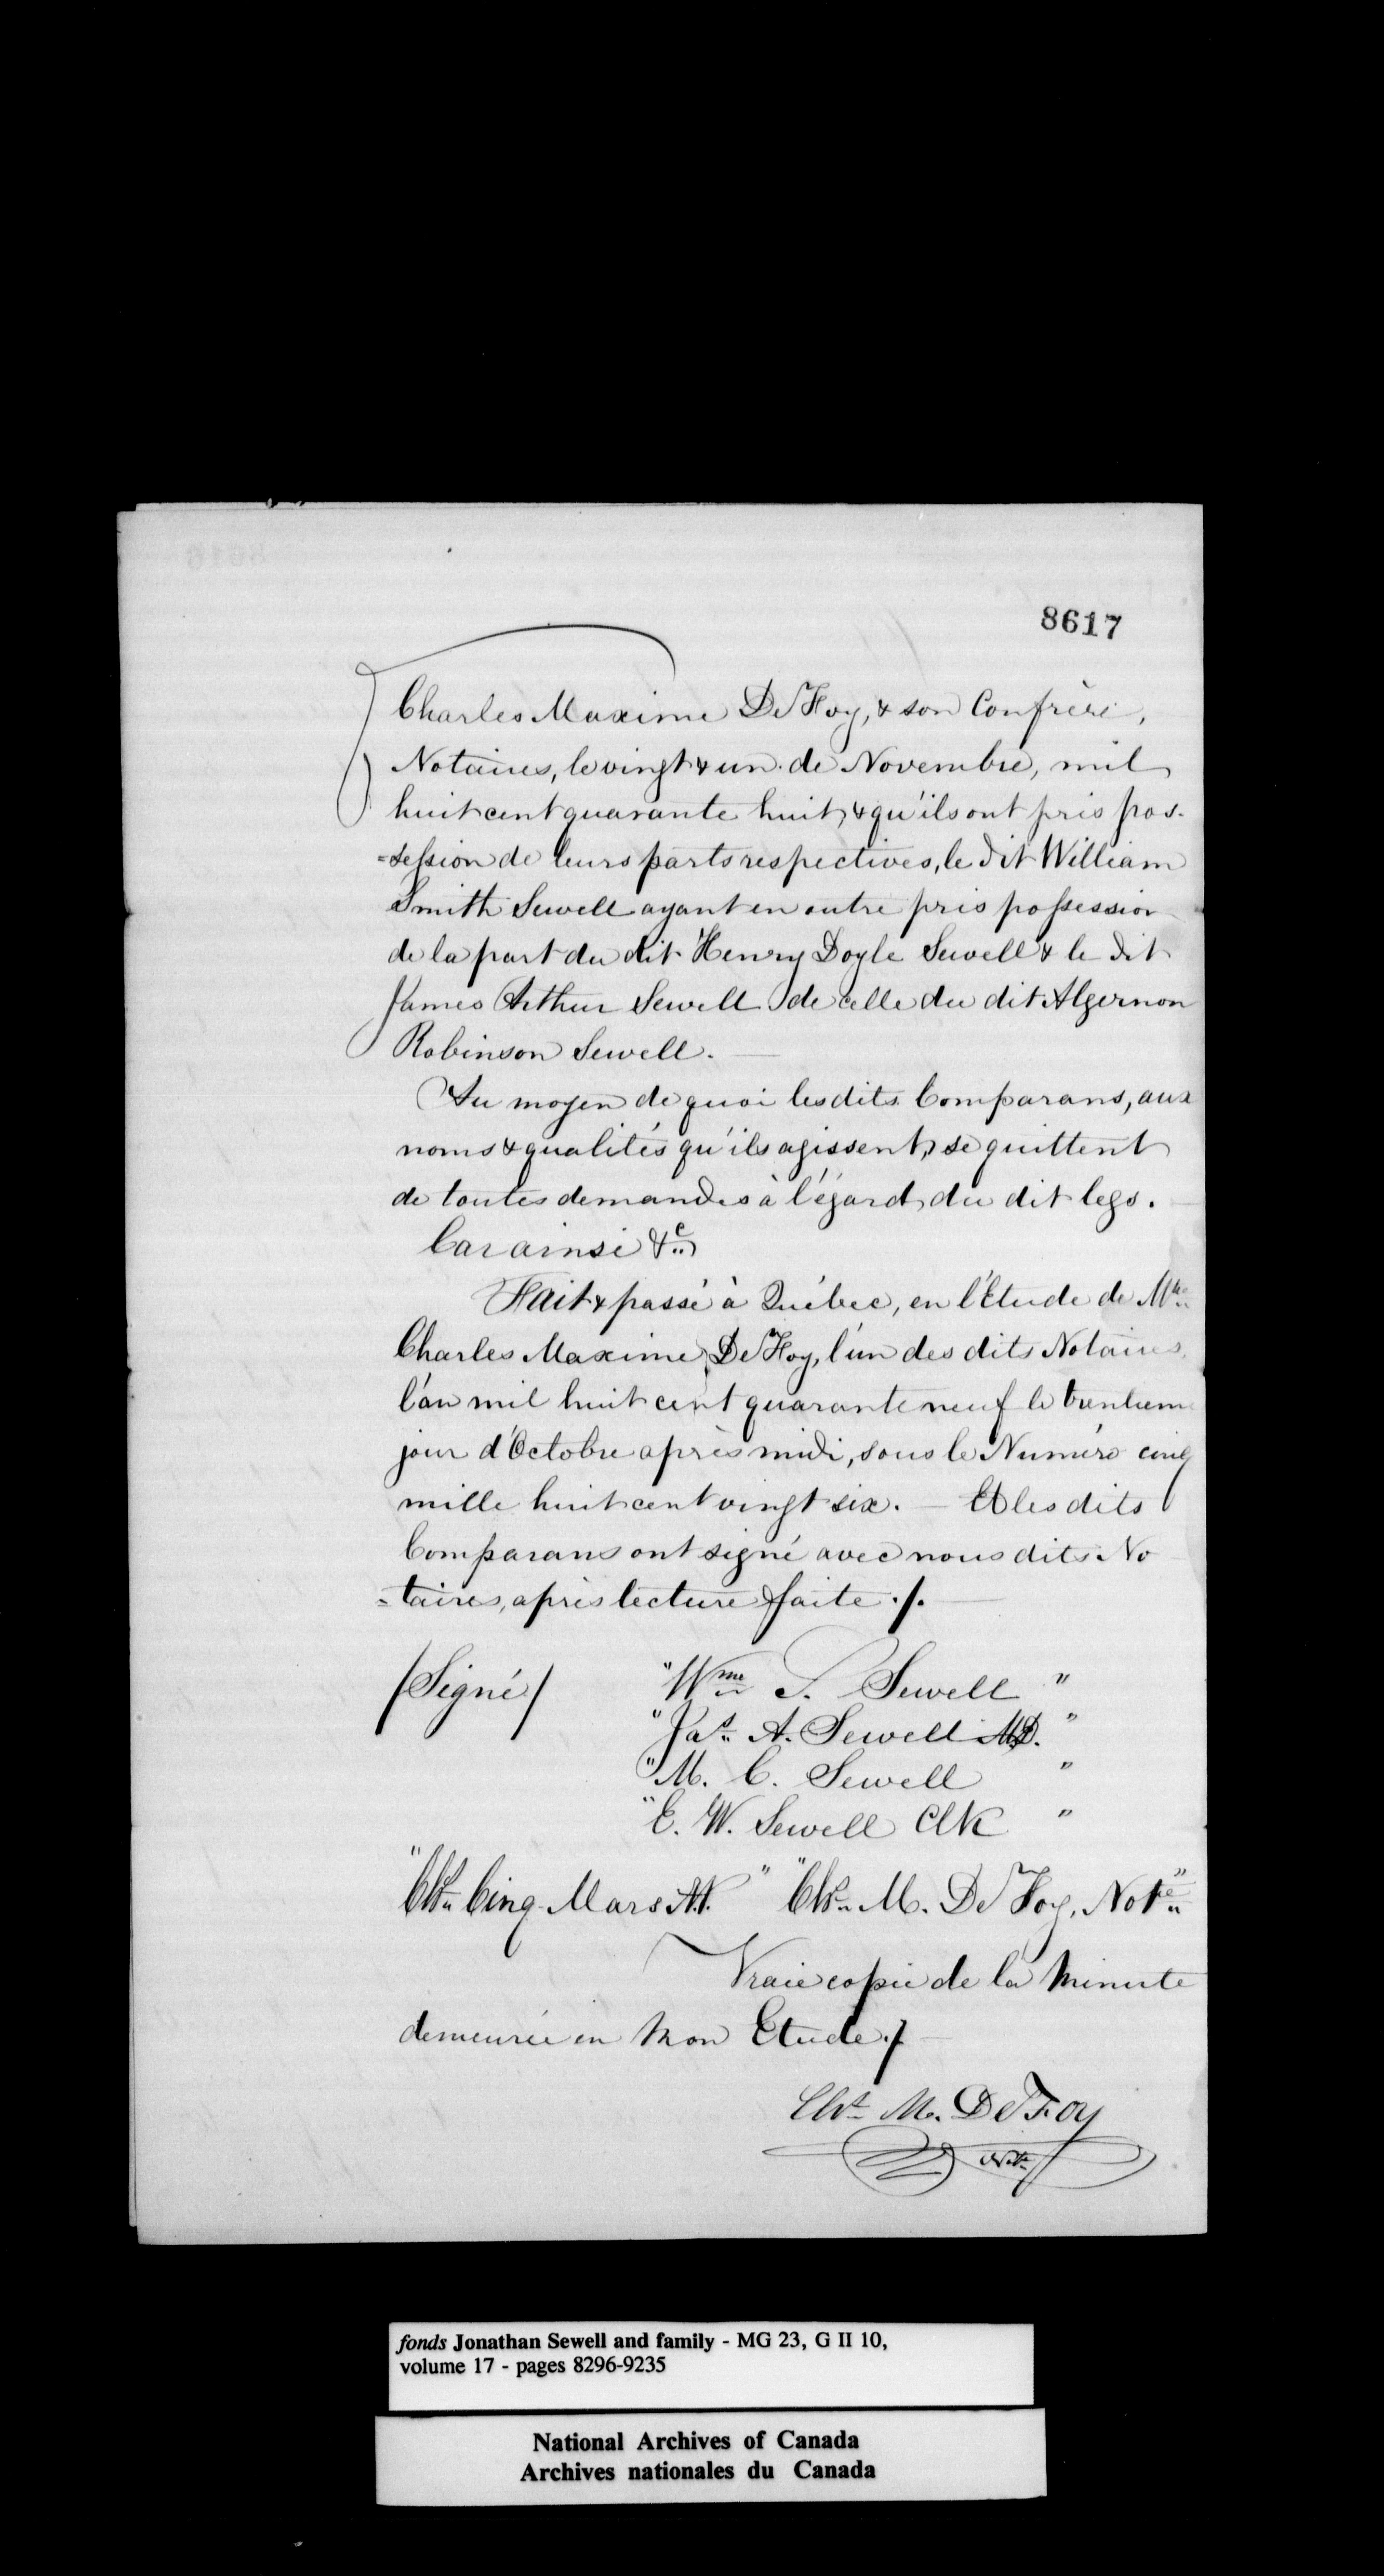 8617
Charles Maxime DeFoy, & son Confrère,
Notaires, le vingt & un de Novembre, mil
huit cent quarante huit, & qu'ils ont pris pos-
=session de leurs parts respectives, le dit William
Smith Sewell ayant en outre pris possession
de la part du dit Henry Doyle Sewell & le dit
James Arthur Sewell de celle du dit Algernon
Robinson Sewell.
Au moyen de quoi les dits Comparans, aux
noms & qualités qu'ils agissent, se quittent
de toutes demandes à l'égard du dit legs.
Car ainsi &c
Fait & passé à Québec, en l'Etude de Mtre
Charles Maxime DeFoy, l'un des dits Notaires,
l'an mil huit cent quarante neuf le trentieme
jour d'Octobre après midi, sous le Numéro cinq
mille huit cent vingt six. — Et les dits
Comparans ont signé avec nous dits No
=taires, après lecture faite ./.
/Signé/ "Wm S. Sewell "
"Jas A. Sewell MD. "
"M. C. Sewell "
"E. W. Sewell Clk "
"Chs Cinq-Mars N.P. " "Chs M. DeFoy, Notre"
Vraie copie de la Minute
demeurée en mon Etude ./.
Chs M. DeFoy
Notre
fonds Jonathan Sewell and family - MG 23, G II 10,
volume 17 - pages 8296-9235
National Archives of Canada
Archives nationales du Canada